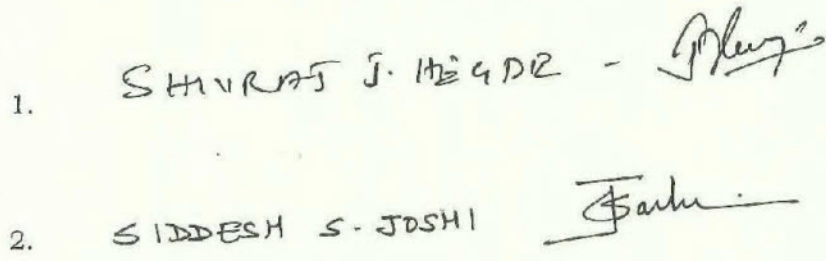 1. SHIVRAJ J. HEGDE -
2. SIDDESH S. JOSHI